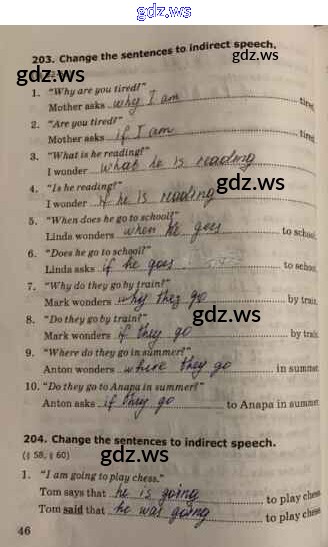 gdz.ws
203. Change the sentences to indirect speech.
1. "Why are you tired?"
Mother asks why I am tired
2. "Are you tired?"
Mother asks if I am tired
3. "What is he reading?"
I wonder what he is reading
gdz.ws gdz.ws
4. "Is he reading?"
I wonder if he is reading
5. "When does he go to school?"
Linda wonders when he goes to school
6. "Does he go to school?"
gdz.ws
Linda asks if he goes to school
7. "Why do they go by train?"
Mark wonders why they go by train
8. "Do they go by train?"
gdz.ws
Mark wonders if they go by train
9. "Where do they go in summer?"
Anton wonders where they go in summer
10. "Do they go to Anapa in summer?"
Anton asks if they go to Anapa in summer
gdz.ws
204. Change the sentences to indirect speech.
(§ 58, § 60)
1. "I am going to play chess."
Tom says that he is going to play chess
Tom said that he was going to play chess
46
gdz.ws
gdz.ws